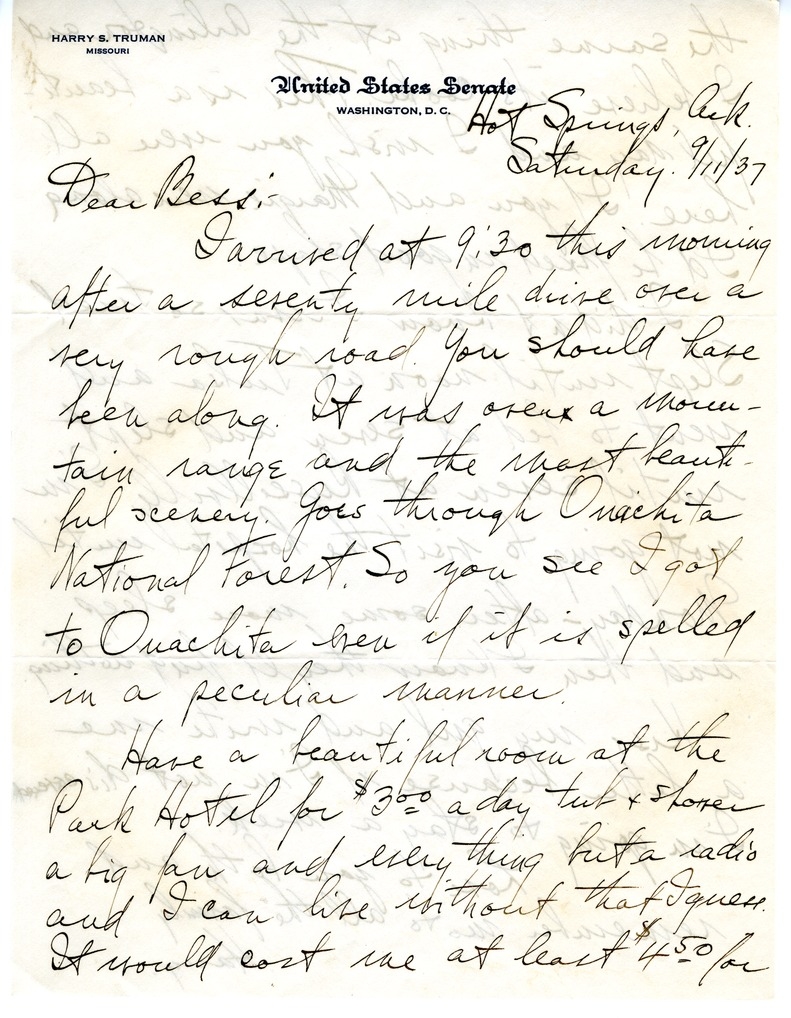 HARRY S. TRUMAN
MISSOURI
United States Senate
WASHINGTON, D. C.
Hot Springs, Ark.
Saturday. 9/11/37
Dear Bess:-
I arrived at 9:30 this morning
after a seventy mile drive over a
very rough road. You should have
been along. It was over a moun-
tain range and the most beauti-
ful scenery. Goes through Ouachita
National Forest. So you see I got
to Ouachita even if it is spelled
in a peculiar manner.
Have a beautiful room at the
Park Hotel for $3.00 a day tub + shower
a big fan and everything but a radio
and I can live without that I guess.
It would cost me at least $4.50 for